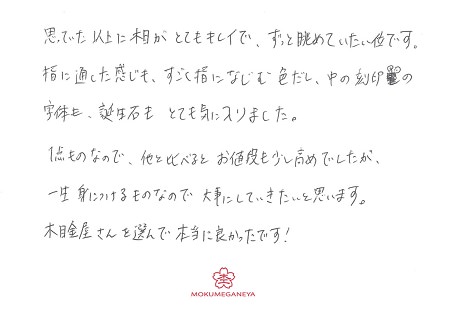 思っていた以上に木目がとてもキレイで、ずっと眺めていたい位です。
指に通した感じも、すごく指になじむ色だし、中の刻印の
字体も、誕生石もとても気に入りました。
1点ものなので、他と比べるとお値段も少し高めでしたが、
一生身につけるものなので大事にしていきたいと思います。
木目金屋さんを選んで本当に良かったです！
MOKUMEGANEYA